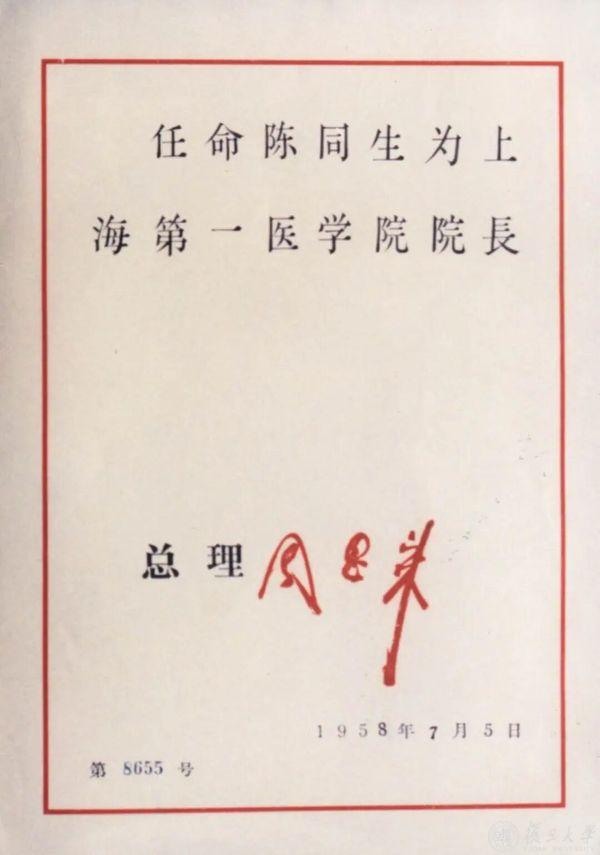 任命陈同生为上
海第一医学院院長
总理 周恩来
1958年7月5日
第 8655 号
復旦大學